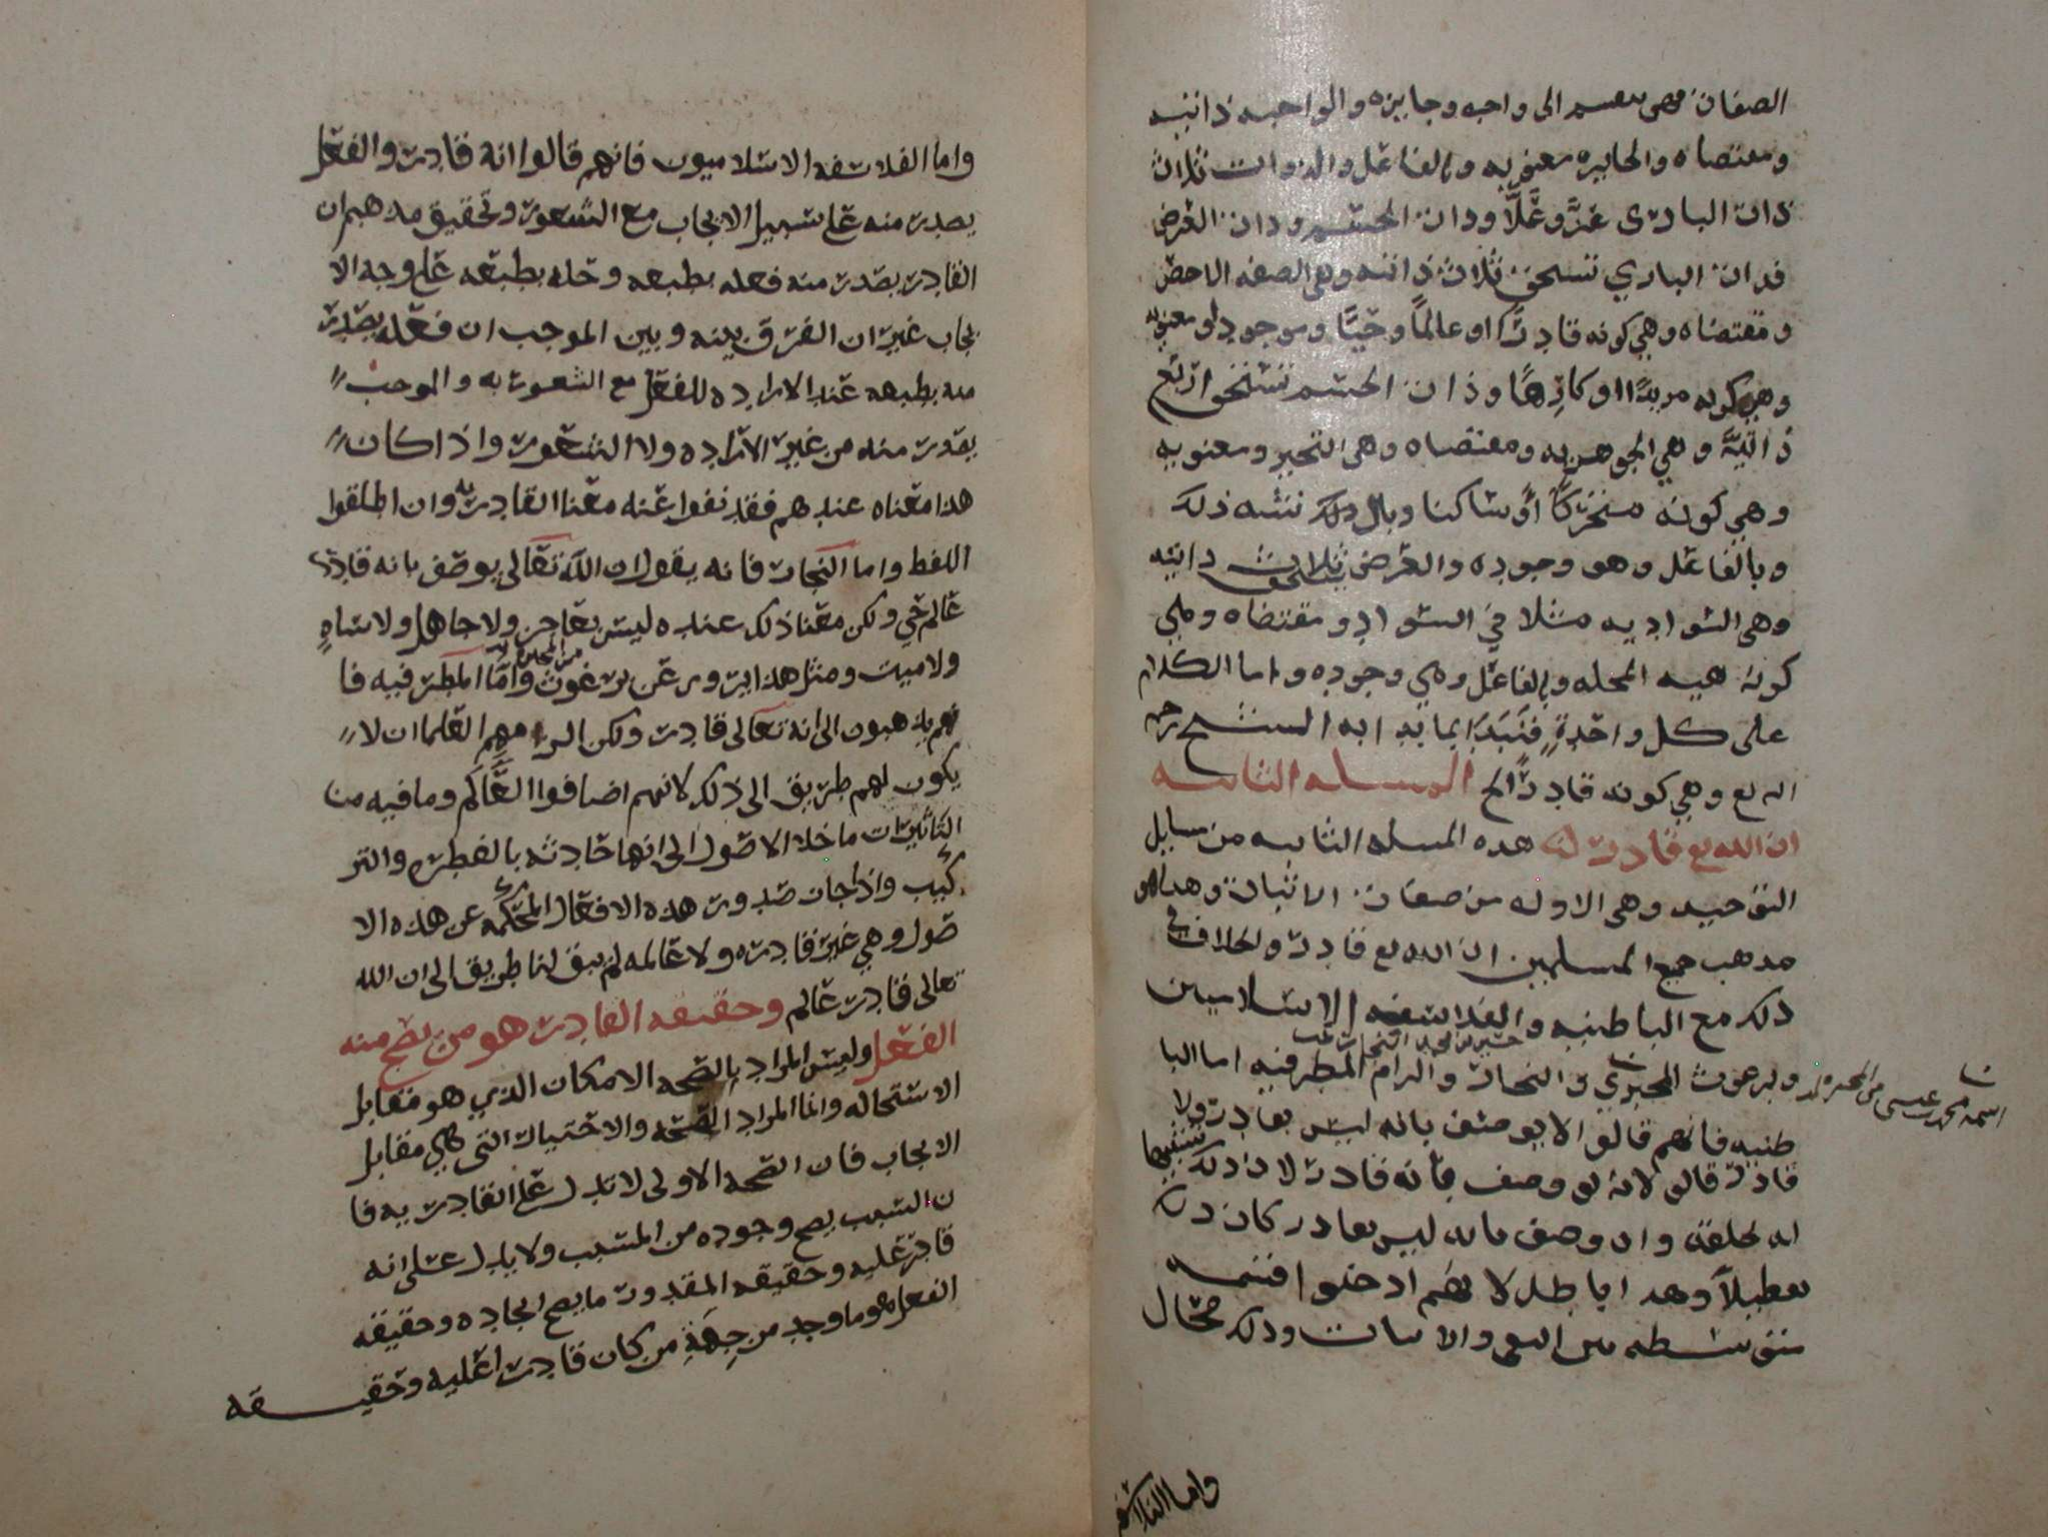 الصفات فهي تنقسم الى واجبه وجايزه والواجبه ذاتيه
ومقتضاه والجايزه معنويه وبالفاعل والذوات ثلاث
ذات الباري عز وعلا وذات الجسم وذات العرض
فذات الباري تستحق ثلاث ذاتيه وهي الصفه الاخص
ومقتضاه وهي كونه قادرًا وعالمًا وحيًّا وموجودا ومعنويه
وهي كونه مريدًا او كارهًا وذات الجسم تستحق اربع
ذاتيَّة وهي الجوهريه ومقتضاه وهي التحيز ومعنويه
وهي كونه متحركًا أو ساكنا وما شبه ذلك
وبالفاعل وهو وجوده والعرض يستحق ثلاث ذاتيه
وهي السواديه مثلا في السواد ومقتضاه وهي
كونه هيه للمحله وبالفاعل وهي وجوده واما الكلام
على كل واحدةٍ فنبدَا بما بدا به الشيخ رحمه
الله تع وهي كونه قادرًا الخ المسله الثانيه
ان الله تع قادر هذه المسله الثانيه من مسايل
التوحيد وهي الاوله من صفات الاثبات وهذا هو
مذهب جميع المسلمين ان الله تع قادر والخلاف في
ذلك مع الباطنيه والفلاسفه الاسلاميين
وبرغوث المجبري والنجار والزام المطرفيه اما البا
اسمه محمد بن عيسى من المجبره
طنيه فانهم قالوا لا يوصف بانه ليس بقادر ولا
قادر قالوا لانه لو وصف بأنه قادر لكان ذلك تشبيها
له بخلقه وان وصف بانه ليس بقادر كان ذلك
تعطيلاً وهذا باطل لانهم ادخلوا قسمه
متوسطه بين النفي والاثبات وذلك محال
واما الفلاسفه
واما الفلاسفه الاسلاميون فانهم قالوا انه قادر والفعل
يصدر منه على سبيل الايجاب مع الشعور وتحقيق مذهبهم ان
القادر يصدر منه فعله بطبعه وخله بطبعه على وجه الا
يجاب غير ان الفرق بينه وبين الموجب ان فعله يصدر
منه بطبعه عند الاراده للفعل مع الشعور به والموجب
يصدر منه من غير الاراده ولا الشعور واذا كان
هذا معناه عندهم فقد نفوا عنه معنا القادريه وان اطلقوا
اللفظ واما النجار فانه يقول ان الله تعالى يوصف بانه قادر
عالم حي ولكن معنا ذلك عنده ليس بعاجز ولا جاهل ولا ساهٍ
ولا ميت ومثل هذا يروى عن برغوث من المجبره وامَّا المطرفيه فا
نهم يذهبون الى انه تعالى قادر ولكن الزمهم العلما ان لا
يكون لهم طريق الى ذلك لانهم اضافوا العَّالَم وما فيه من
التاثيرات ما خلا الاصول الى انها حادثه بالفطره والتر
كيب واذا جاز صدور هذه الافعال المحكمه عن هذه الا
صول وهي غير قادره ولا عالمه لم يبق لنا طريق الى ان الله
تعالى قادر عالم وحقيقه القادر هو من يصح منه
الفعل وليس المراد بالصحه الامكان الذي هو مقابل
الاستحاله وانما المراد الصحه والاختيار التي هي مقابل
الايجاب فان الصحه الاولى لا تدل على القادريه فا
ن السبب يصح وجوده من المسبب ولا يدل على انه
قادر عليه وحقيقه المقدور ما يصح ايجاده وحقيقه
الفعل هو ما وجد من جِهَةِ من كان قادرا عليه وحقيقه